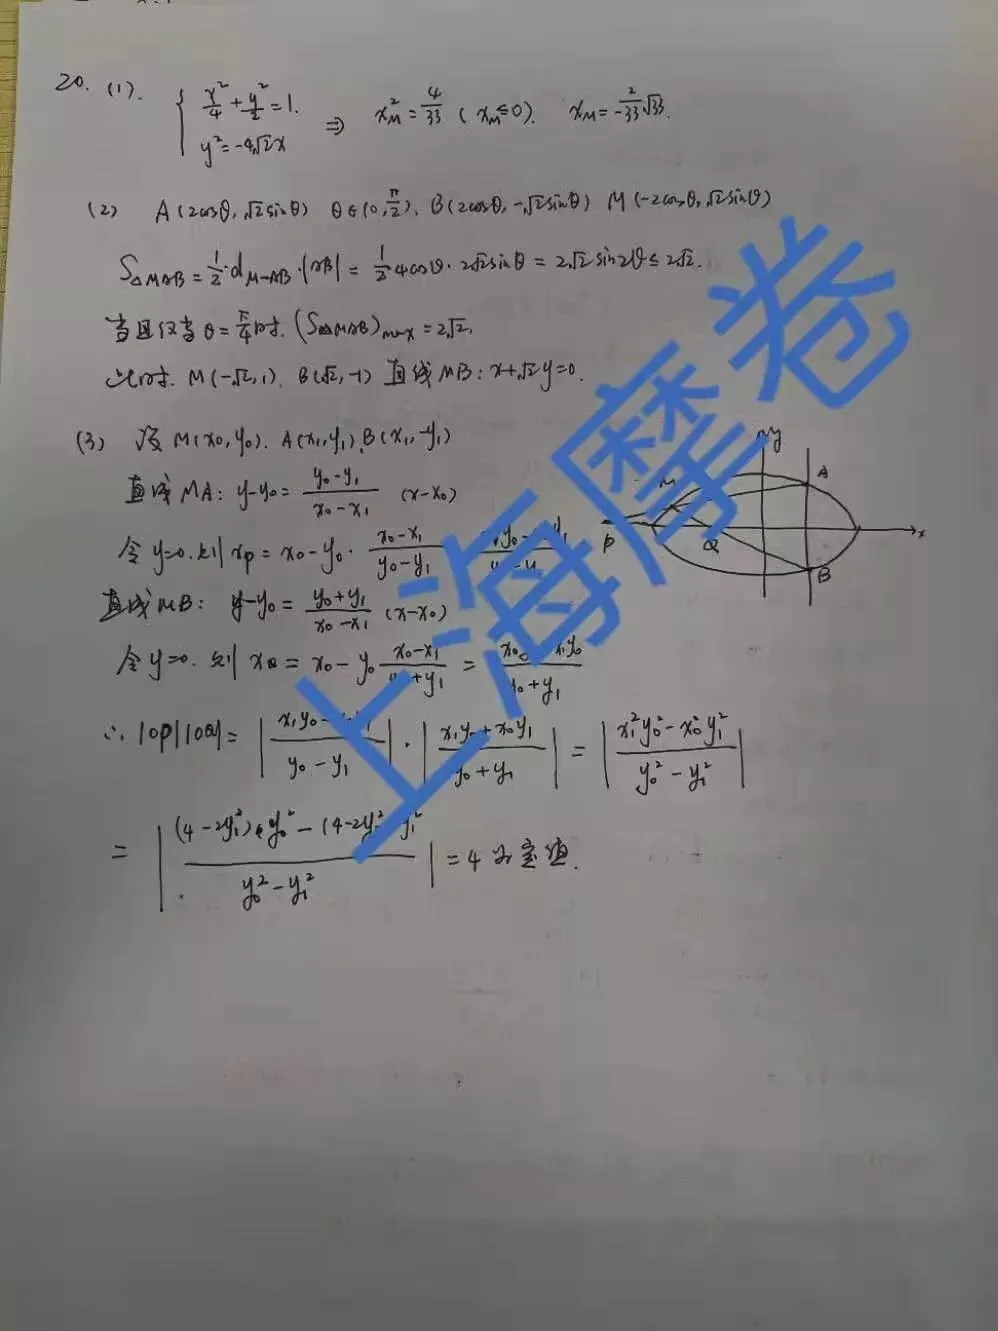 20. (1). { x²/4 + y²/2 = 1. y² = -4√2x ⇒ x_M² = 4/33 ( x_M ≤ 0 ). x_M = -2/33 √33.
(2) A (2cosθ, √2sinθ) θ∈(0, π/2). B(2cosθ, -√2sinθ) M(-2cosθ, √2sinθ)
S△MAB = 1/2·d_M-AB·|AB| = 1/2 4cosθ·2√2sinθ = 2√2 sin2θ ≤ 2√2.
当且仅当θ = π/4时. (S△MAB)max = 2√2.
此时. M(-√2, 1). B(√2, -1) 直线MB: x+√2y=0.
(3) 设 M(x0, y0). A(x1, y1), B(x1, -y1)
直线MA: y-y0 = (y0-y1)/(x0-x1) (x-x0)
令y=0. 则 xp = x0-y0·(x0-x1)/(y0-y1)
直线MB: y-y0 = (y0+y1)/(x0-x1) (x-x0)
令y=0. 则 xQ = x0-y0 (x0-x1)/(y0+y1) =
∴ |OP||OQ| = | /(y0-y1) |·| (x1y0+x0y1)/(y0+y1) | = | (x1²y0²-x0²y1²)/(y0²-y1²) |
= | /(y0²-y1²) | = 4 为定值.
y
M
A
P
Q
x
B
上海摩卷